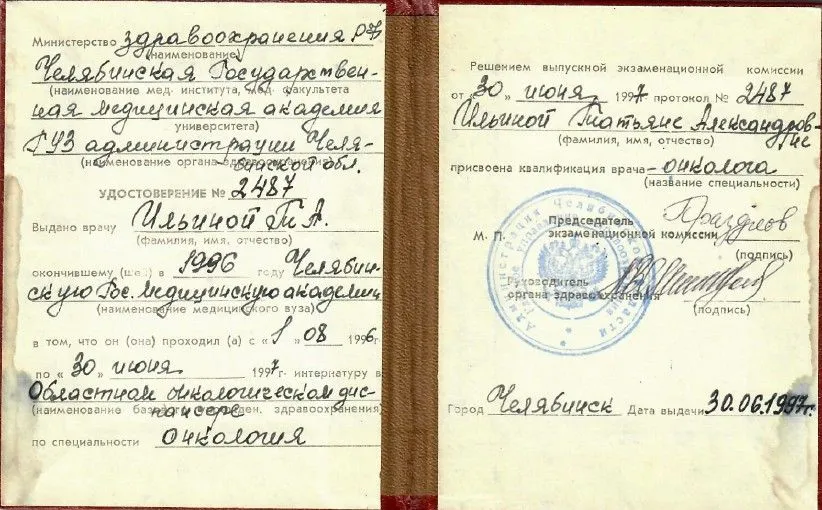 Министерство здравоохранения РФ
(наименование)
Челябинская Государствен-
(наименование мед. института, мед. факультета
ная медицинская академия
университета)
ГУЗ администрации Челя-
(наименование органа здравоохранения)
бинской обл.
УДОСТОВЕРЕНИЕ № 2487
Выдано врачу Ильиной Т.А.
(фамилия, имя, отчество)
окончившему (шей) в 1996 году Челябин-
скую Гос. медицинскую академию
(наименование медицинского вуза)
в том, что он (она) проходил (а) с «1» 08 1996 г.
по «30» июня 1997 г. интернатуру в
Областном онкологическом дис-
(наименование базового учрежден. здравоохранения)
пансере
по специальности Онкология
Решением выпускной экзаменационной комиссии
от «30» июня 1997 протокол № 2487
Ильиной Татьяне Александров-
не
(фамилия, имя, отчество)
присвоена квалификация врача-онколога
(название специальности)
Председатель
М. П. экзаменационной комиссии
(подпись)
Руководитель
органа здравоохранения
(подпись)
Город Челябинск Дата выдачи 30.06.1997г.